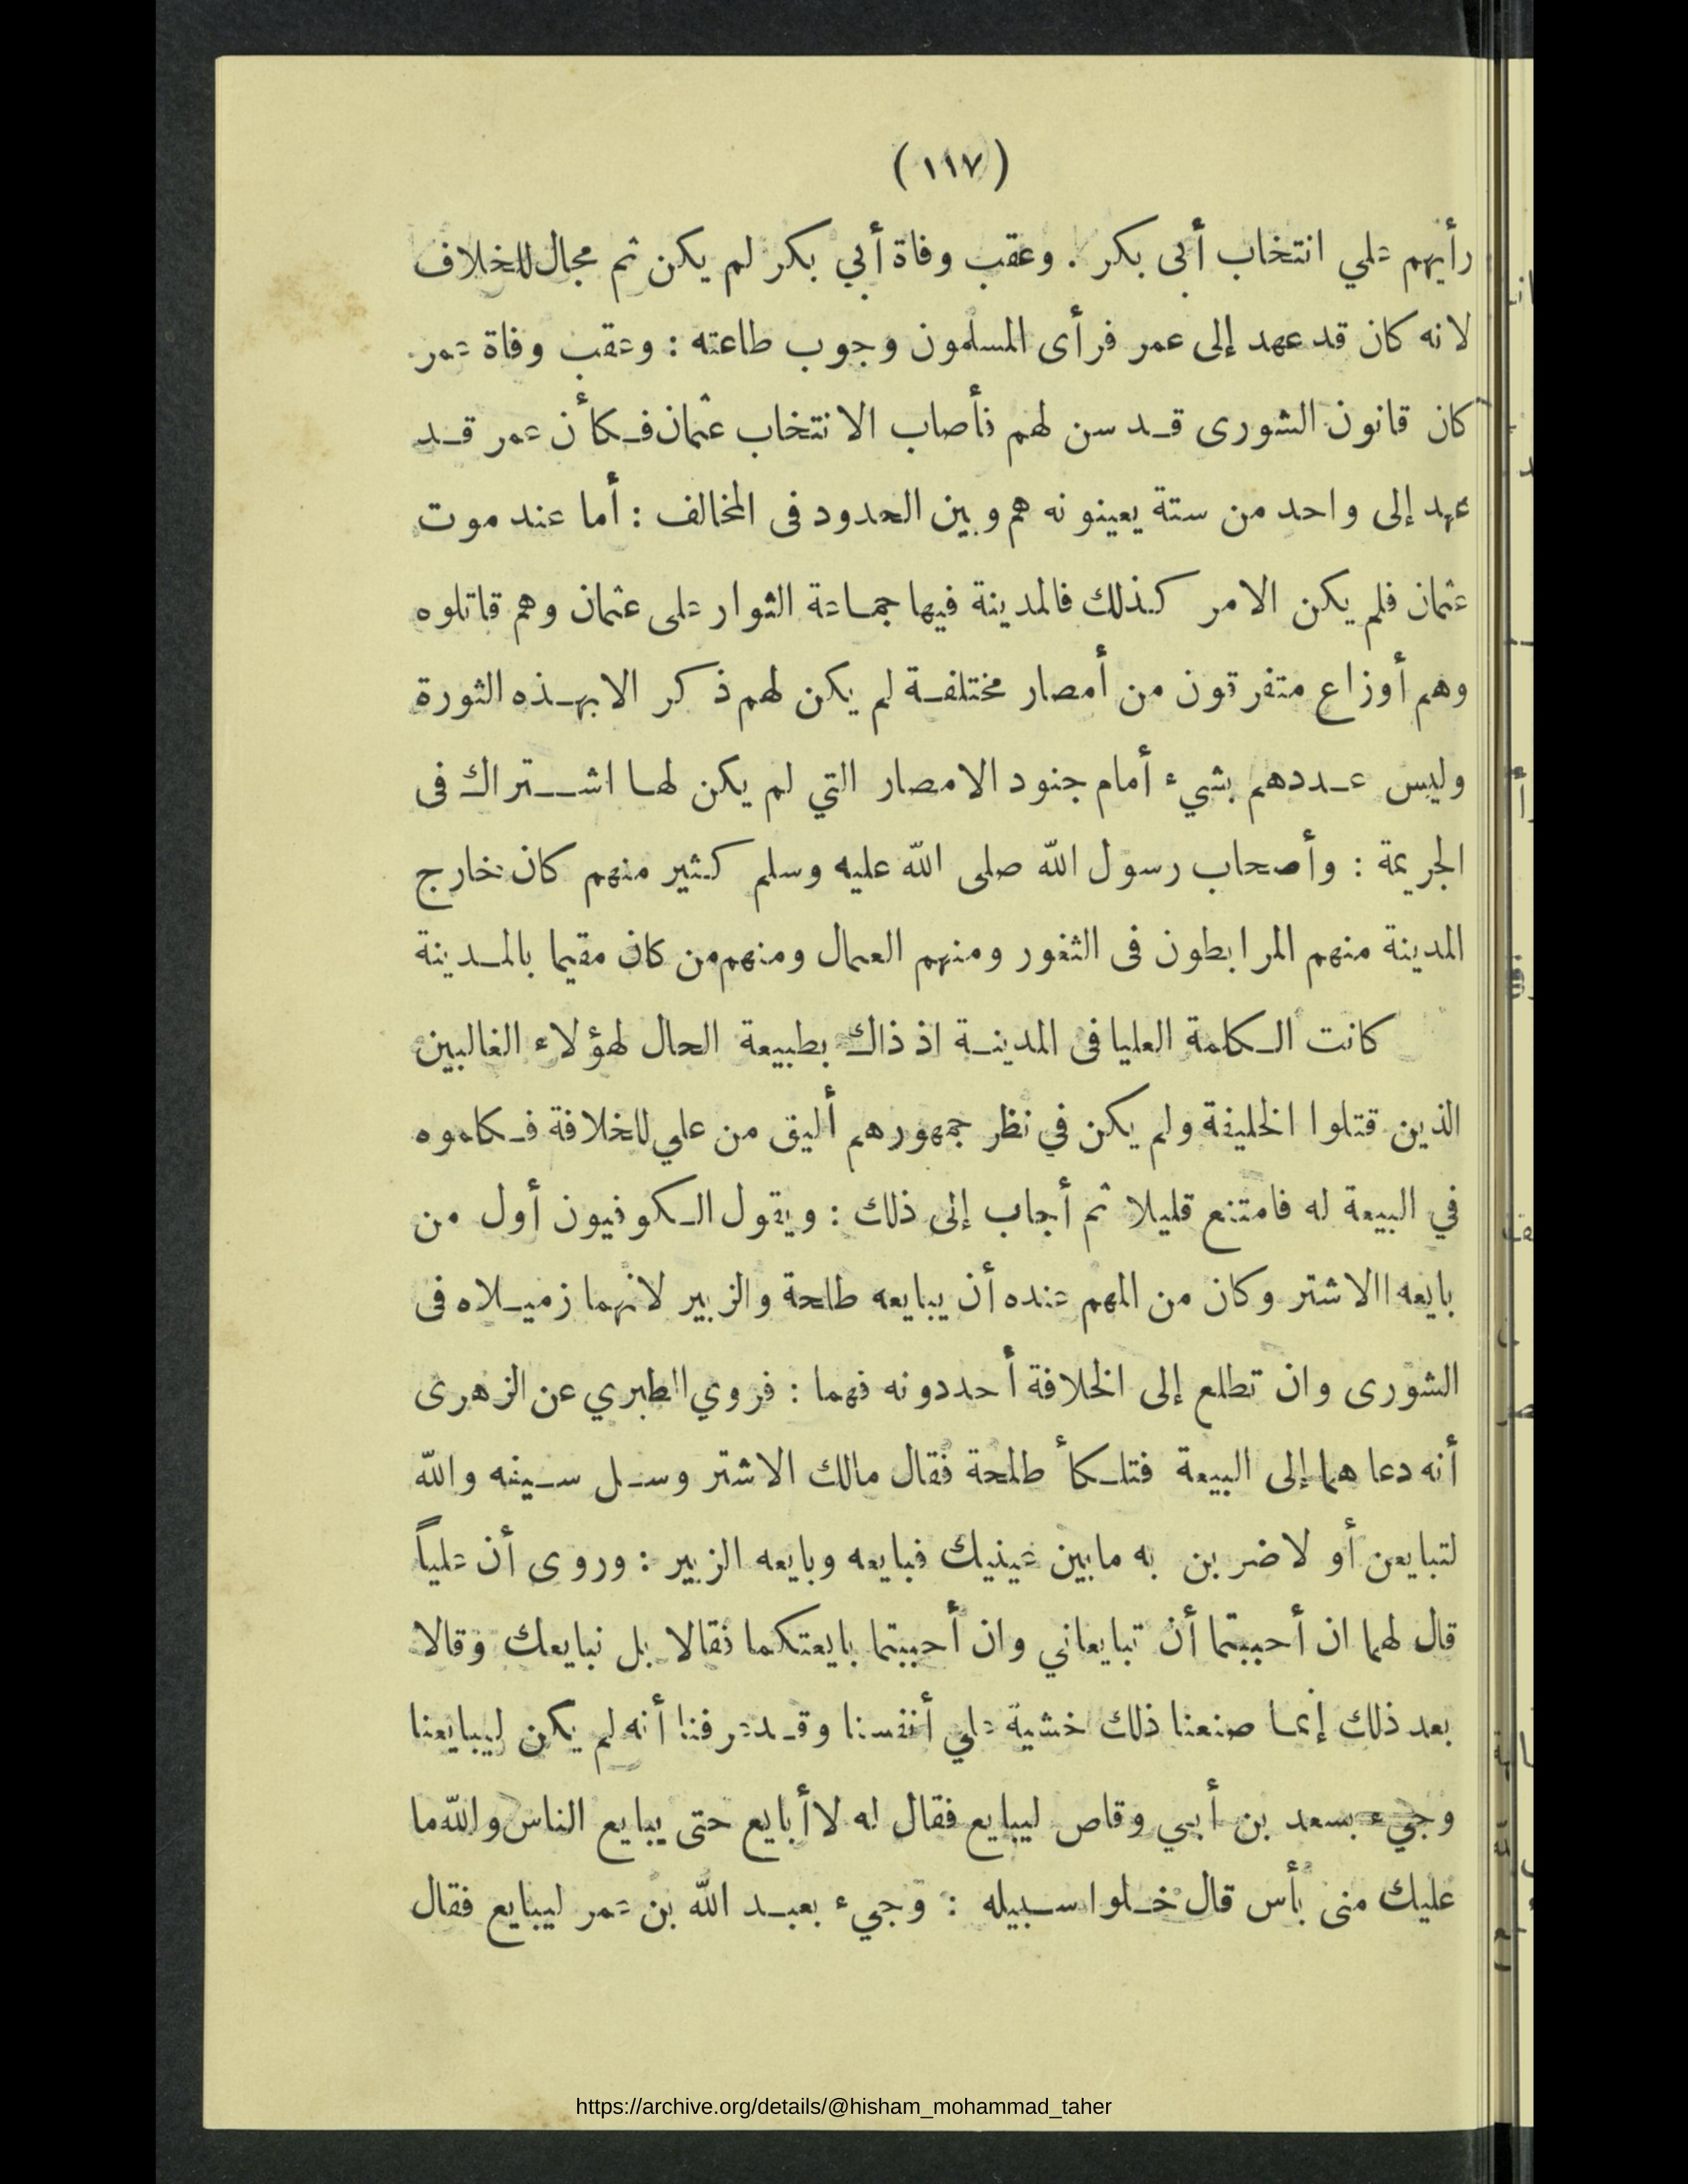 (١١٧)
رأيهم علي انتخاب أبى بكر . وعقب وفاة أبي بكر لم يكن ثم مجال للخلاف
لانه كان قد عهد إلى عمر فرأى المسلمون وجوب طاعته : وعقب وفاة عمر
كان قانون الشورى قد سن لهم فأصاب الانتخاب عثمان فكأن عمر قد
عهد إلى واحد من ستة يعينونه هم وبين الحدود فى المخالف : أما عند موت
عثمان فلم يكن الامر كذلك فالمدينة فيها جماعة الثوار على عثمان وهم قاتلوه
وهم أوزاع متفرقون من أمصار مختلفة لم يكن لهم ذكر الا بهذه الثورة
وليس عددهم بشيء أمام جنود الامصار التي لم يكن لها اشتراك فى
الجريمة : وأصحاب رسول الله صلى الله عليه وسلم كثير منهم كان خارج
المدينة منهم المرابطون فى الثغور ومنهم العمال ومنهم من كان مقيما بالمدينة
كانت الكلمة العليا فى المدينة اذ ذاك بطبيعة الحال لهؤلاء الغالبين
الذين قتلوا الخليفة ولم يكن في نظر جمهورهم أليق من علي للخلافة فكلموه
في البيعة له فامتنع قليلا ثم أجاب إلى ذلك : ويقول الكوفيون أول من
بايعه االاشتر وكان من المهم عنده أن يبايعه طلحة والزبير لانهما زميلاه فى
الشورى وان تطلع إلى الخلافة أحد دونه فهما : فروي الطبري عن الزهرى
أنه دعاهما إلى البيعة فتلكأ طلحة فقال مالك الاشتر وسل سيفه والله
لتبايعن أو لاضربن به ما بين عينيك فبايعه وبايعه الزبير : وروى أن علياً
قال لهما ان أحببتما أن تبايعاني وان أحببتما بايعتكما فقالا بل نبايعك وقالا
بعد ذلك إنما صنعنا ذلك خشية علي أنفسنا وقد عرفنا أنه لم يكن ليبايعنا
وجيء بسعد بن أبي وقاص ليبايع فقال له لا أبايع حتى يبايع الناس والله ما
عليك منى بأس قال خلوا سبيله : وجيء بعبد الله بن عمر ليبايع فقال
https://archive.org/details/@hisham_mohammad_taher